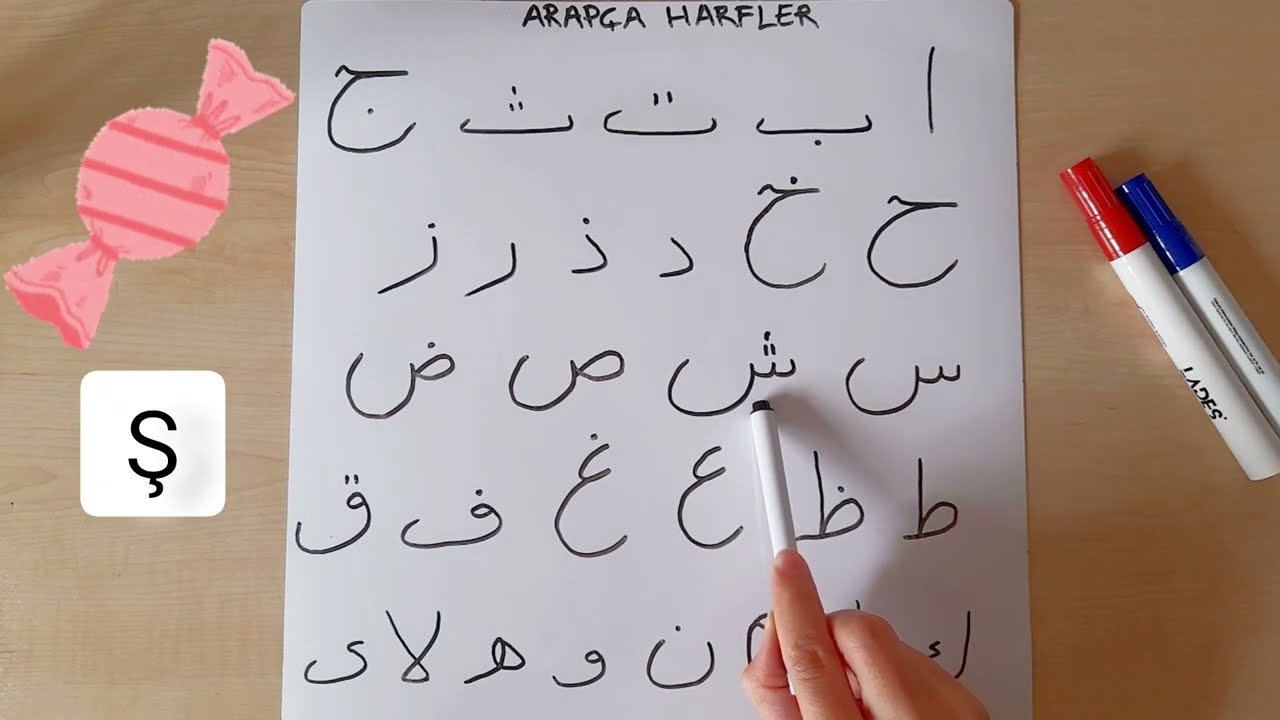 ARAPÇA HARFLER
ا ب ت ث ج
ح خ د ذ ر ز
س ش ص ض
ط ظ ع غ ف ق
ك ن و ه لا ى
Ş
LADES